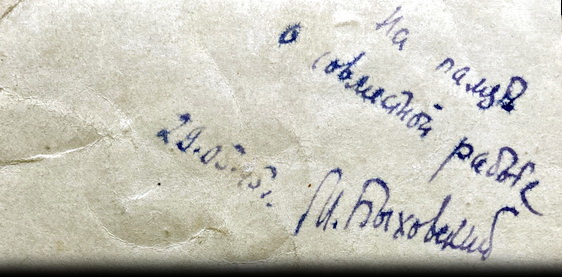 На память
о совместной работе
М. Быховский